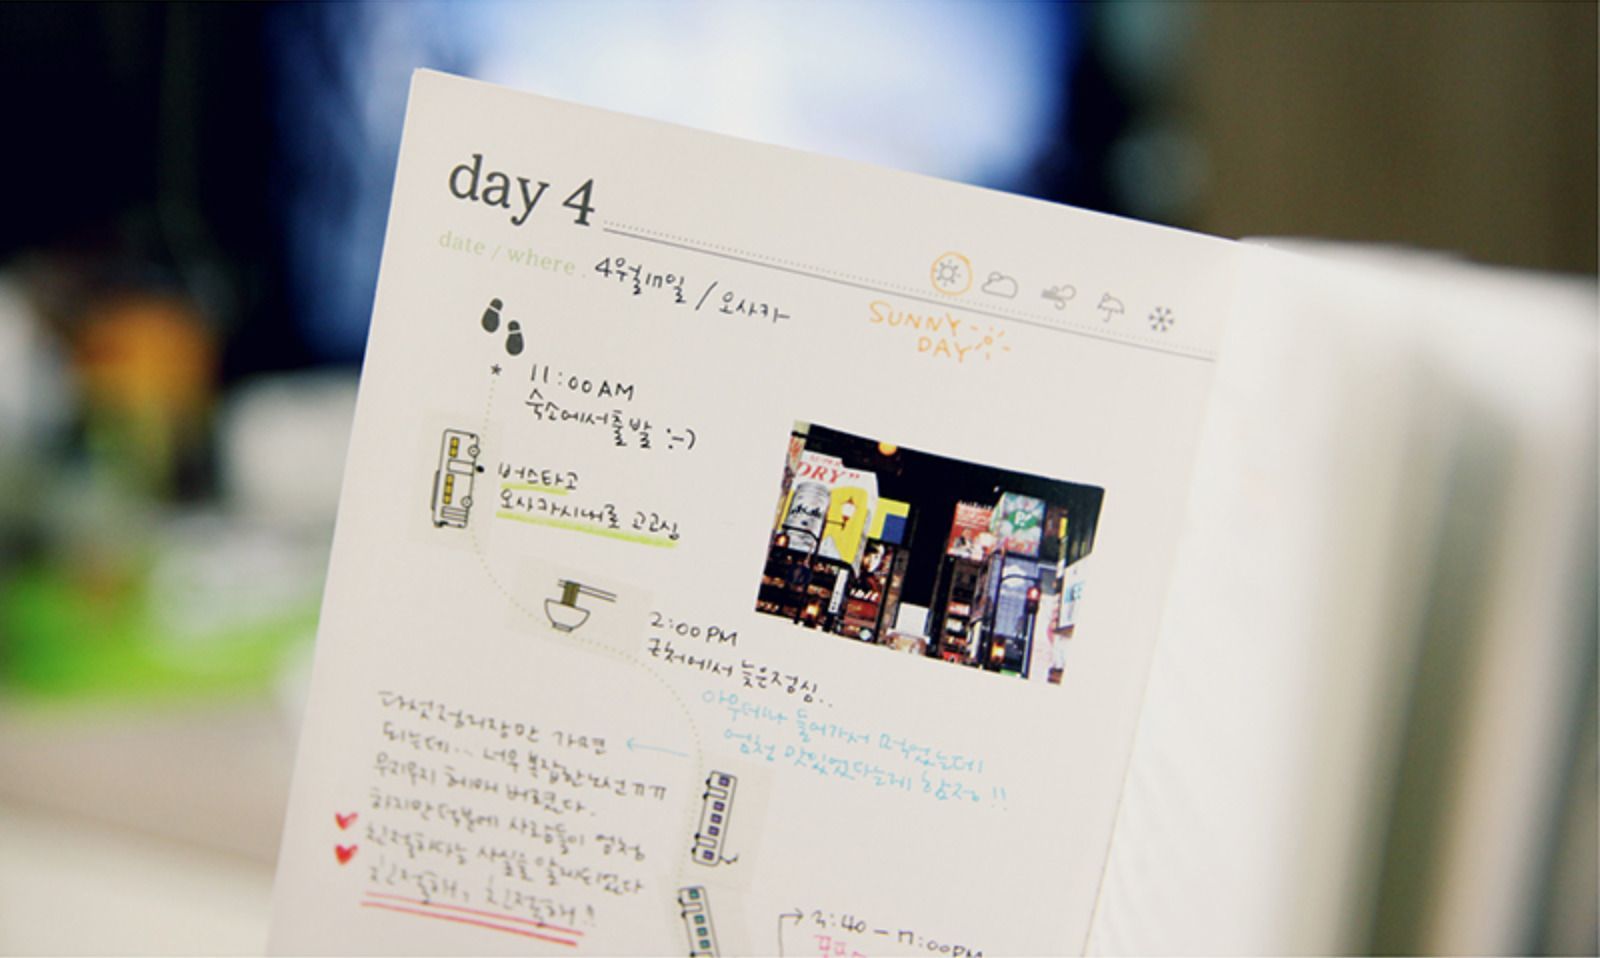 day 4
date / where. 4월17일 / 오사카
SUNNY
DAY
11:00AM
숙소에서출발 :-)
버스타고
오사카시내로 고고싱
DRY"
2:00PM
근처에서 늦은점심..
아무데나 들어가서 먹었는데
엄청 맛있었다는게 함정!!
다섯정거장만 가면
되는데... 너무 복잡한노선ㅠㅠ
우리무지 헤매 버렸다.
하지만덕분에 사람들이 엄청
친절하다는 사실을 알게되었다
친절해, 친절해!!
3:40 - 7:00PM